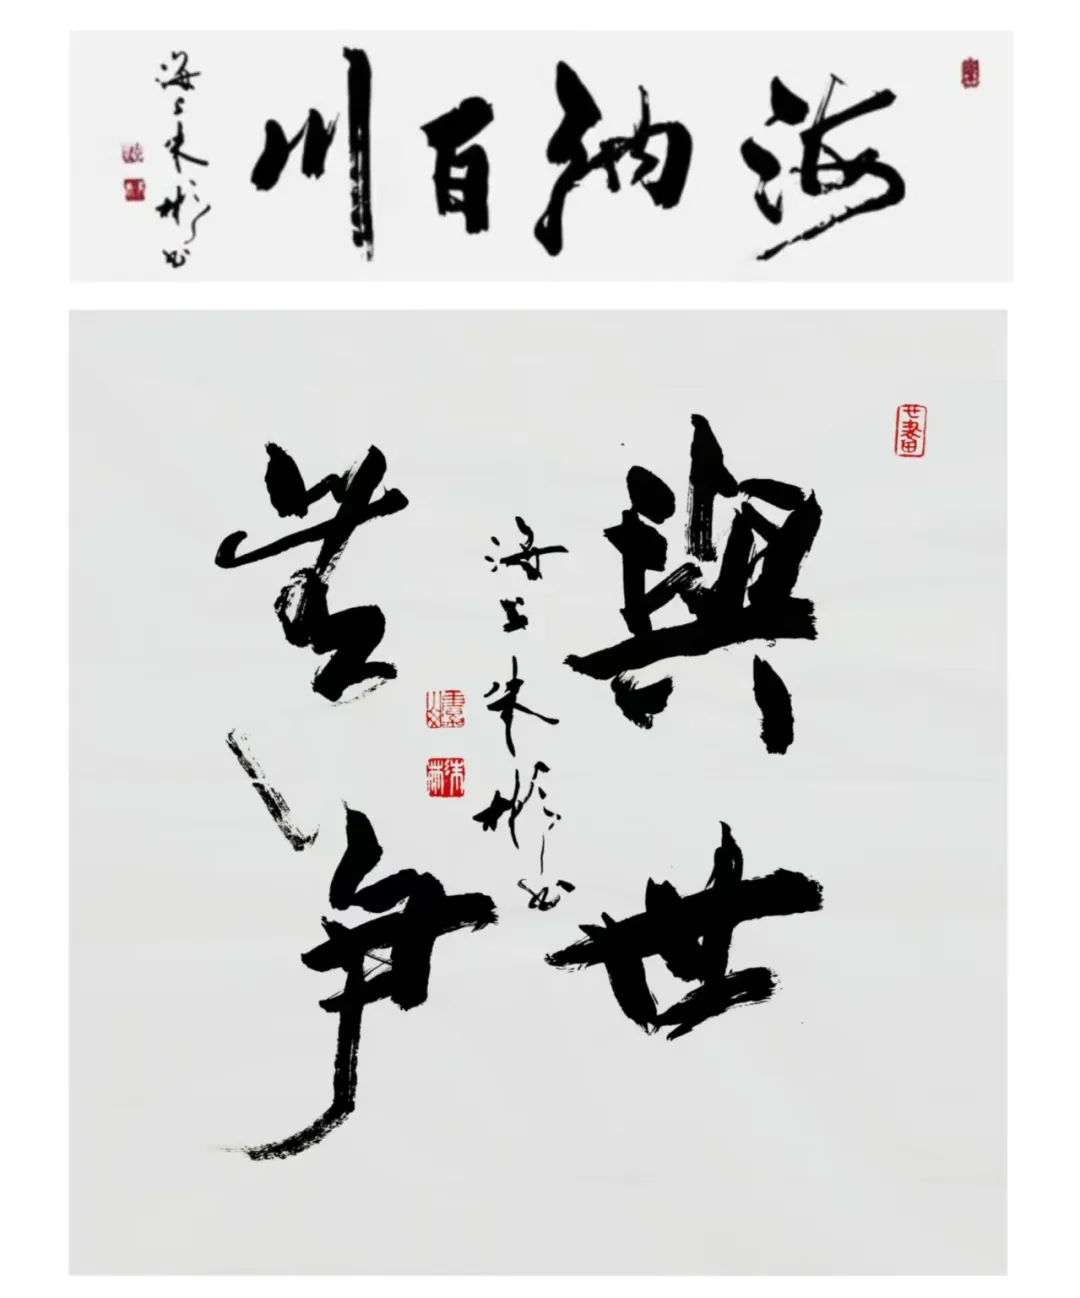 海納百川
海上朱彬书
與世
無爭
海上朱彬书